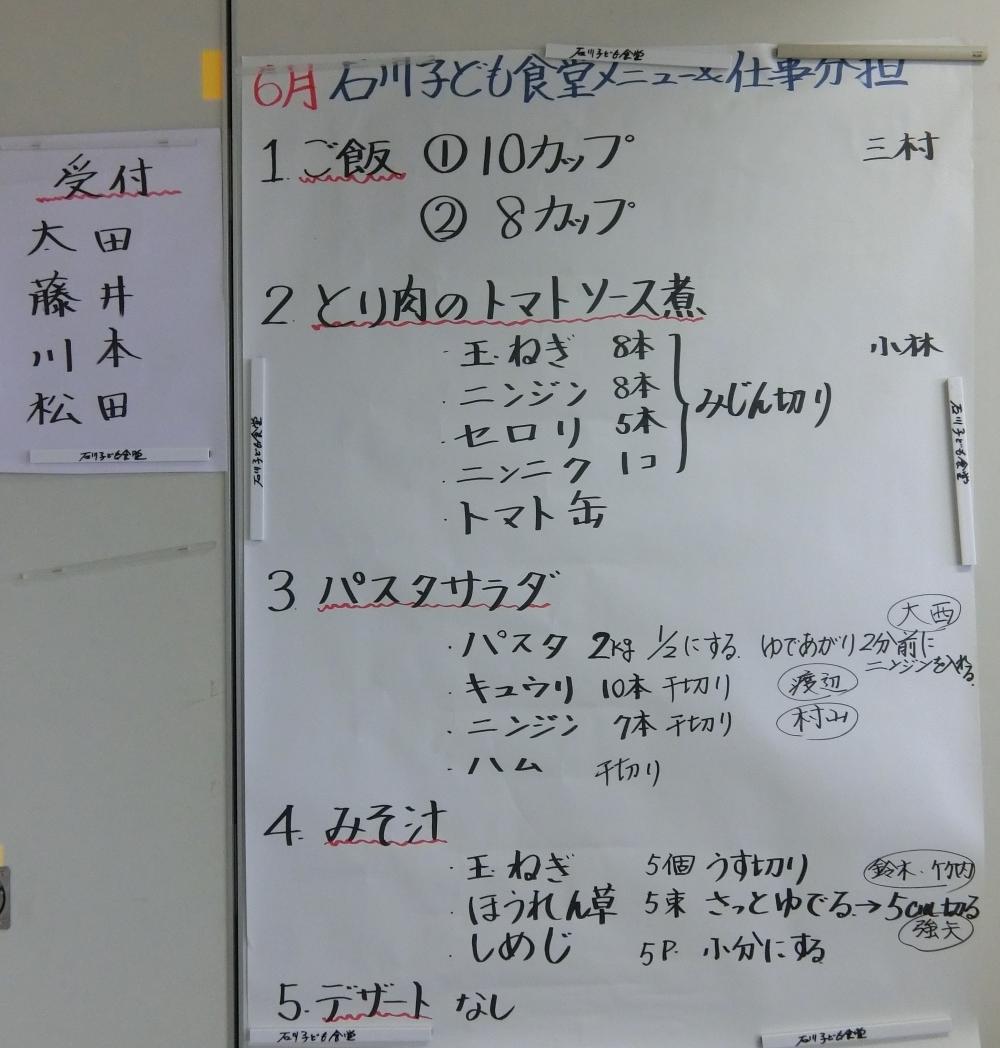 石川子ども食堂
6月 石川子ども食堂メニュー&仕事分担
1 ご飯 ① 10カップ 三村
② 8カップ
2 とり肉のトマトソース煮
・玉ねぎ 8本 小林
・ニンジン 8本
みじん切り
・セロリ 5本
・ニンニク 1コ
・トマト缶
3 パスタサラダ
大西
・パスタ 2kg 1/2にする ゆであがり2分前に
ニンジンを入れる。
・キュウリ 10本 千切り 渡辺
・ニンジン 7本 千切り 村山
・ハム 千切り
4. みそ汁
・玉ねぎ 5個 うす切り 鈴木・竹内
・ほうれん草 5束 さっとゆでる→5cm切る
強矢
・しめじ 5P. 小分にする
5. デザート なし
石川子ども食堂
石川子ども食堂
石川子ども食堂
石川子ども食堂
受付
太田
藤井
川本
松田
石川子ども食堂